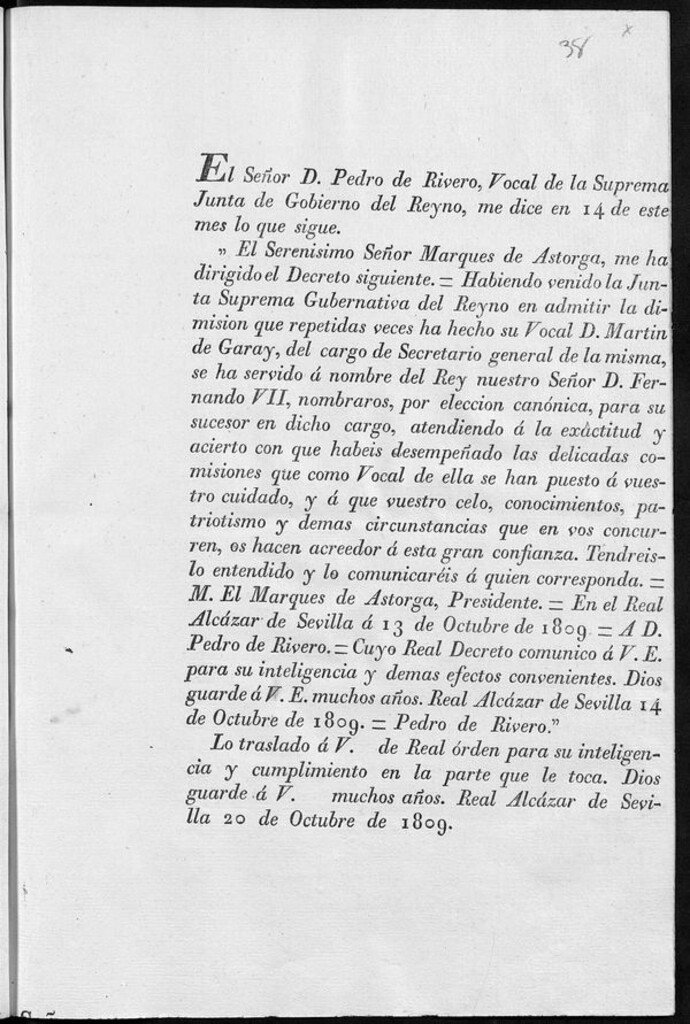 38 x
El Señor D. Pedro de Rivero, Vocal de la Suprema
Junta de Gobierno del Reyno, me dice en 14 de este
mes lo que sigue.
„ El Serenisimo Señor Marques de Astorga, me ha
dirigido el Decreto siguiente. = Habiendo venido la Jun-
ta Suprema Gubernativa del Reyno en admitir la di-
mision que repetidas veces ha hecho su Vocal D. Martin
de Garay, del cargo de Secretario general de la misma,
se ha servido á nombre del Rey nuestro Señor D. Fer-
nando VII, nombraros, por eleccion canónica, para su
sucesor en dicho cargo, atendiendo á la exâctitud y
acierto con que habeis desempeñado las delicadas co-
misiones que como Vocal de ella se han puesto á vues-
tro cuidado, y á que vuestro celo, conocimientos, pa-
triotismo y demas circunstancias que en vos concur-
ren, os hacen acreedor á esta gran confianza. Tendreis-
lo entendido y lo comunicaréis á quien corresponda. =
M. El Marques de Astorga, Presidente. = En el Real
Alcázar de Sevilla á 13 de Octubre de 1809 = A D.
Pedro de Rivero. = Cuyo Real Decreto comunico á V. E.
para su inteligencia y demas efectos convenientes. Dios
guarde á V. E. muchos años. Real Alcázar de Sevilla 14
de Octubre de 1809. = Pedro de Rivero.”
Lo traslado á V. de Real órden para su inteligen-
cia y cumplimiento en la parte que le toca. Dios
guarde á V. muchos años. Real Alcázar de Sevi-
lla 20 de Octubre de 1809.